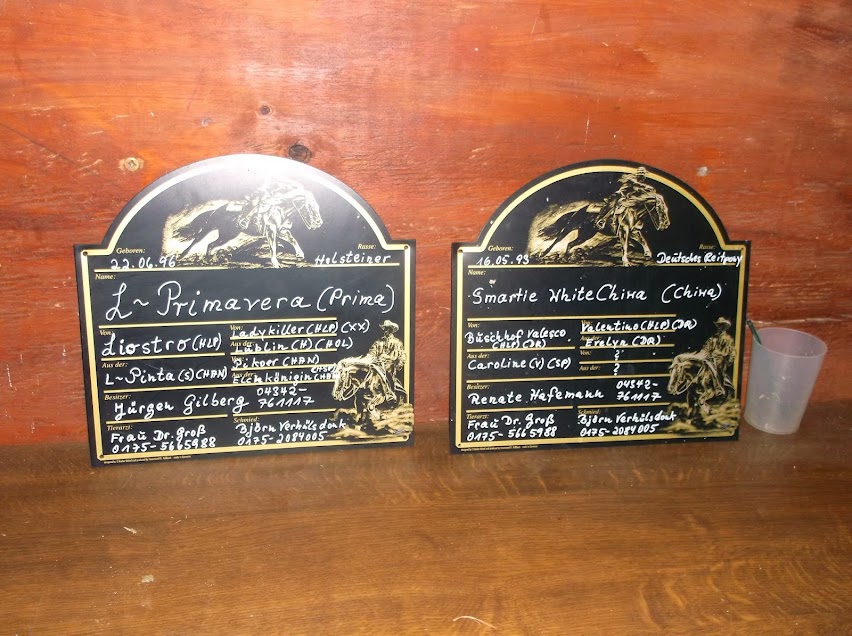 Geboren:
Rasse:
22.06.96
Holsteiner
Name:
L~Primavera (Prima)
Von:
Liostro (HLP)
Von:
Ladykiller (HLP) (XX)
Aus der:
Lüblin (H) (HOL)
Aus der:
L~Pinta (S) (HAN)
Von:
Pikoer (HAN)
Aus der:
Eichkönigin (HAN)
(HSP)
Besitzer:
Jürgen Gilberg
04342-
761117
Tierarzt:
Frau Dr. Groß
0175-5665988
Schmied:
Björn Verhülsdonk
0175-2084005
Geboren:
Rasse:
16.05.93
Deutsches Reitpony
Name:
Smartie White Chiwa (Chiwa)
Von:
Büschhof Valesco
(HLP) (DR)
Von:
Valentino (HLP) (DR)
Aus der:
Evelyn (DR)
Aus der:
Caroline (V) (SP)
Von:
?
Aus der:
?
Besitzer:
Renate Hafemann
04342-
761117
Tierarzt:
Frau Dr. Groß
0175-5665988
Schmied:
Björn Verhülsdonk
0175-2084005